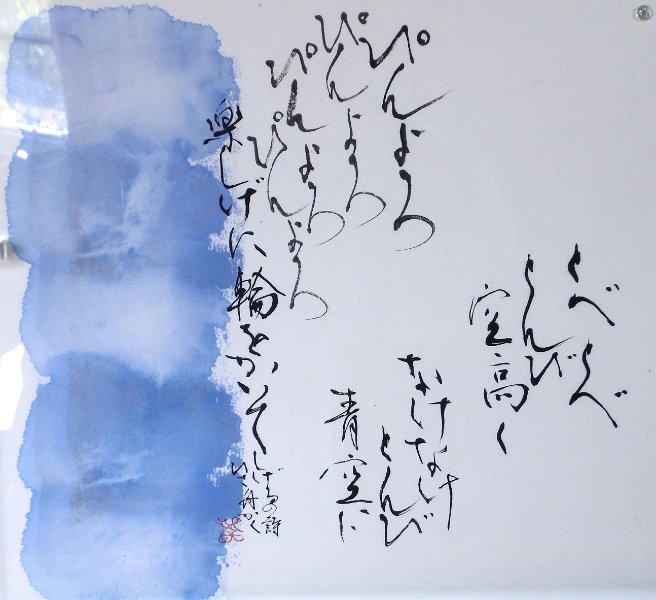 とべとべ
とんび
空高く
なけなけ
とんび
青空に
ぴんよろう
ぴんよろう
ぴんよろう
ぴんよろう
楽しげに輪をかいて
しげるの詩